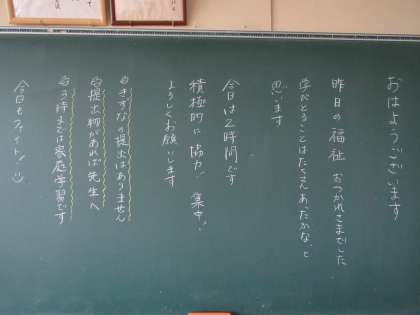 おはようございます
昨日の福祉 おつかれさまでした
学んだことはたくさんあったかな、と
思います
今日は2時間です
積極的に協力！集中！
よろしくお願いします
きずなの提出はありません
提出物があれば先生へ
3時までは家庭学習です
今日もファイト！